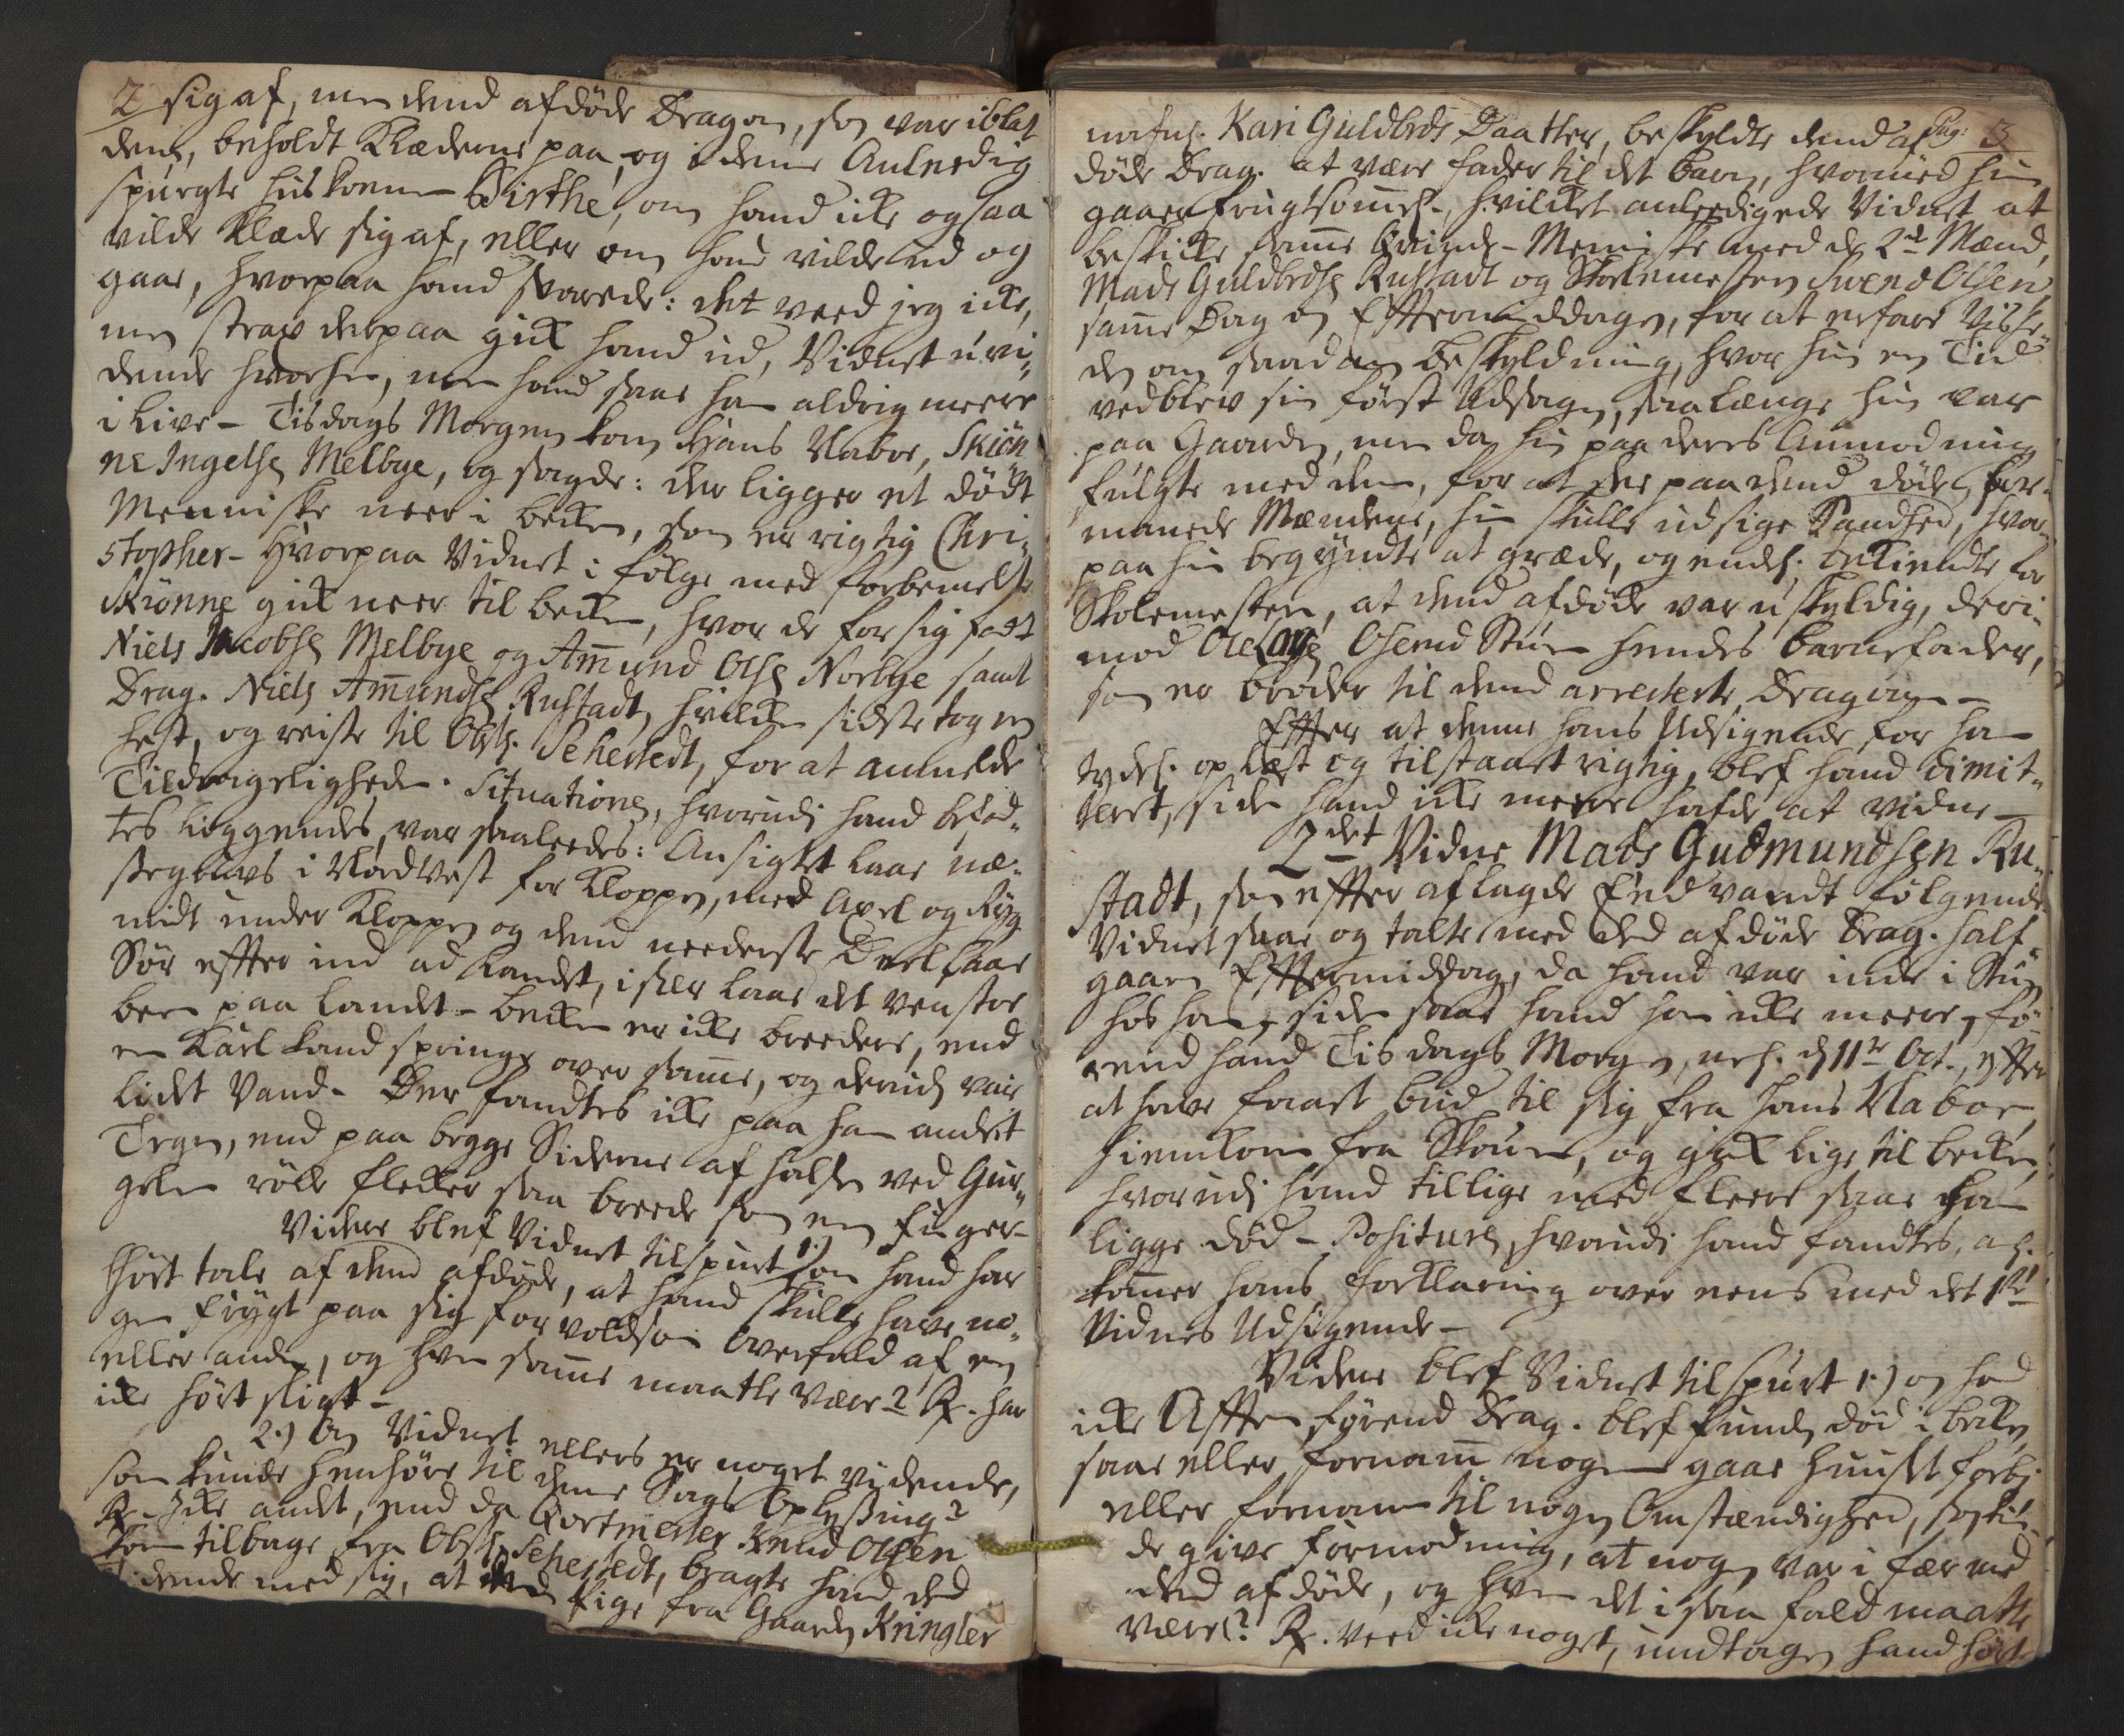 2
sig af, men dend afdöde Dragon, som var iblat
dem, beholdt Klæderne paa, og i denne Anledning
spurgte huskonen Birthe, om hand icke ogsaa
vilde klæde sig af, eller om hand vilde ud og
gaae, hvorpaa hand svarede: det veed jeg icke,
men strax derpaa gick hand ud, Vidnet uvi-
dende hvorhen, men hand saae ham aldrig meere
i Live - Tisdags Morgen kom Hans Nabor, Skiön
ne Ingelsen Melbye, og sagde: der ligger et dödt
Menniske neer i becken, som er rigtig Chri-
stopher - Hvorpaa Vidnet i fölge med forbemelte
Skiönne gick neer til becken, hvor de for sig fadt
Niels Jacobsen Melbye og Amund Olsen Norbye samt
Drag. Niels Amundsen Rustadt, hvilken sidste tog en
hest, og reiste til Obstl. Sehestedt, for at anmelde
Tildrageligheden. Situationen, hvorudi hand befad-
tes liggendes, var saaledes: Ansigtet laae næ-
stegruus i Nordvest for Kloppen, med Axel og Ryg
midt under Kloppen og dend neederste Deel laae
Sör effter ind ad Landet, især laae det venstre
been paa Landet - becken er icke breedere, end
en Karl kand springe over samme, og derudi var
lidet Vand - Der fandtes icke paa ham andet
Tegn, end paa begge Siderne af halsen ved Gur-
gelen röde flecker saa breede som en finger -
Videre blef Vidnet tilspurt 1.) om hand har
hört tale af dend afdöde, at hand skulle have no-
gen frygt paa sig for voldsom Overfald af en
eller anden, og hvem samme maatte være? R. har
icke hört sligt -
2.) Om Vidnet ellers er noget vidende,
som kunde henhöre til denne Sags Oplysning?
R. Icke andet, end da Qvortmester Knud Olsen
kom tilbage fra Obstl. Sehestedt, bragte hand ded
Tidende med sig, at en Pige fra Gaarden Kringler
Pag: 3
nafnl. Kari Guldbrds Daatter, beskyldte dend af
döde Drag. at være fader til det barn, hvormed hun
gaaer frugtsommel., hvilket anleedigede Vidnet at
beskicke samme Qvinde-Menniske med de 2de Mænd,
Mads Guldbrdsen Rustadt og Skolemesteren Svend Olsen,
samme Dag om Efftermiddagen, for at erfare Vishe-
den om saadan beskyldning, hvor hun en Tid
vedblev sin först Udsagn, saalænge hun var
paa Gaarden, men da hun paa deres Anmodning
fulgte med dem, for at see paa dend döde, for-
manede Mændene, hun skulle udsige Sandhed, hvor-
paa hun begyndte at græde, og endl. bekiendte for
Skolemesteren, at dend afdöde var uskyldig, deri-
mod Ole Larsen Ohemd Stuen hendes barnefader,
som er broder til dend arresterte Dragon -
Effter at denne hans Udsigende for ham
tydel. oplæst og tilstaaet rigtig, blef hand dimit-
teret, siden hand icke meere hafde at vidne -
2det Vidne Mads Gudmundsen Ru-
stadt, som effter aflagde Eed vandt fölgende.
Vidnet saae og talte med ded afdöde Drag. half-
gaaen Efftermiddag, da hand var inde i Stuen
hos ham, siden saae hand ham icke meere, fö-
rend hand Tisdags Morgen, nel. d 11te Oct., effter
at have faaet bud til sig fra hans Naboe,
hiemkom fra Skoven, og gick lige til becken,
hvorudi hand tillige med fleere saae ham
ligge död - Posituren, hvorudi hand fandtes, a l.
kommer hans forklaring over eens med det 1ste
Vidnes Udsigende -
Videre blef Vidnet tilspurt 1.) om hand
icke Afften förend Drag. blef funden död i becken
saae eller fornam nogen gaae Huuset forbj
eller fornam til nogen Omstændighed, som kun-
de give formodning, at nogen var i fær med
ded afdöde, og hvem det i saa fald maatte
være? R. veed icke noget, undtagen hand hört